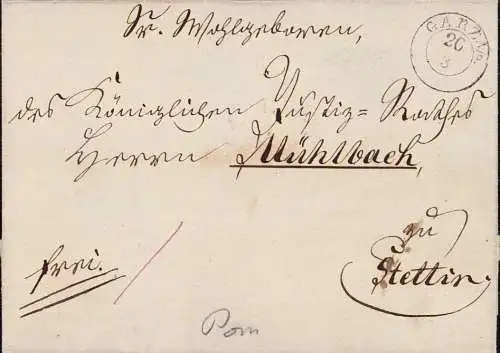 Sr. Wohlgeboren,
GARZ A/O.
20
3
des Königlichen Justiz=Rathes
Herrn Mühlbach,
zu
Stettin.
frei.
Pom